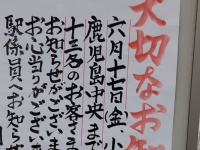 大切なお知
六月十七日(金)、小
鹿児島中央まで
十三名のお客さま
お知らせございま
お心当りがござい
駅係員へお知らせ